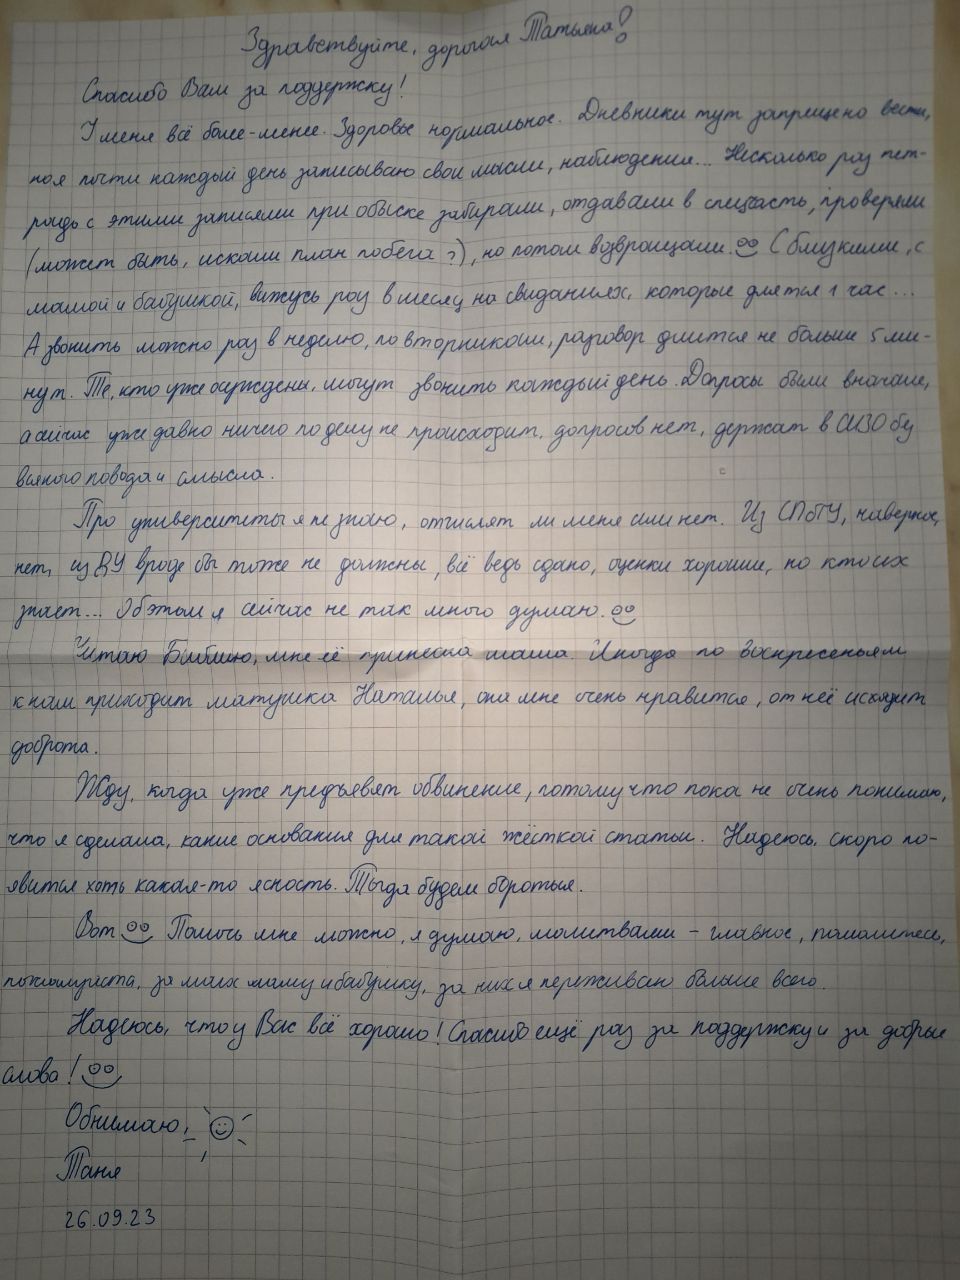 Здравствуйте, дорогая Татьяна!
Спасибо Вам за поддержку!
У меня всё более-менее. Здоровье нормальное. Дневники тут запрещено вести,
но я почти каждый день записываю свои мысли, наблюдения... Несколько раз тет-
радь с этими записями при обыске забирали, отдавали в спецчасть, проверяли
(может быть, искали план побега?), но потом возвращали. С близкими, с
мамой и бабушкой, вижусь раз в месяц на свиданиях, которые длятся 1 час...
А звонить можно раз в неделю, по вторникам, разговор длится не больше 5 ми-
нут. Те, кто уже осуждены, могут звонить каждый день. Допросы были вначале,
а сейчас уже давно ничего по делу не происходит, допросов нет, держат в СИЗО без
всякого повода и смысла.
Про университеты я не знаю, отчислят ли меня или нет. Из СПбГУ, наверное,
нет, из ВУ вроде бы тоже не должны, всё ведь сдано, оценки хорошие, но кто их
знает... Об этом я сейчас не так много думаю.
Читаю Библию, мне её принесла мама. Иногда по воскресеньям
к нам приходит матушка Наталья, она мне очень нравится, от неё исходит
доброта.
Жду, когда уже предъявят обвинение, потому что пока не очень понимаю,
что я сделала, какие основания для такой жёсткой статьи. Надеюсь, скоро по-
явится хоть какая-то ясность. Тогда будем бороться.
Вот Помочь мне можно, я думаю, молитвами - главное, помолитесь,
пожалуйста, за моих маму и бабушку, за них я переживаю больше всего.
Надеюсь, что у Вас всё хорошо! Спасибо ещё раз за поддержку и за добрые
слова!
Обнимаю,
Таня
26.09.23